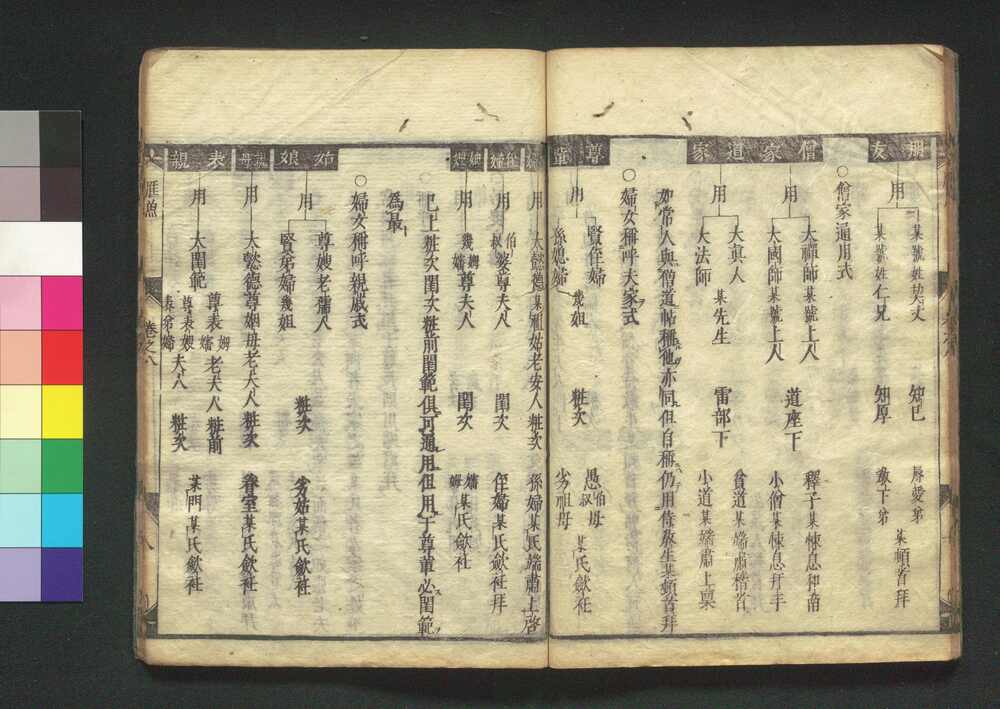 朋友
用
某號姓契丈 知已 辱愛弟
某號姓仁兄 知厚 教下弟
某頓首拜
○僧家通用式
僧家
用
大禪師某號上人
大國師某號上人
道座下
釋子某悚息和南
小僧某悚息拜手
道家
用
大真人
大法師
某先生
雷部下
貧道某端肅稽首
小道某端肅上稟
如常人與僧道帖稱他亦同但自稱仍用侍教生某頓首拜
○婦女稱呼夫家式
尊輩
用
賢侄婦
孫媳婦
幾姐 粧次
愚伯叔母
少祖母
某氏歛衽
用
大懿德某祖姑老安人粧次 孫婦某氏端肅上啓
侄婦
用
伯叔婆尊夫人 閨次 侄婦某氏歛衽拜
用
幾嬸尊夫人 閨次 某氏歛衽
已上粧次閨次粧前閨範俱可通用但用于尊輩必閨範
為最
○婦女稱呼親戚式
姑娘
用
尊嫂老孺人
賢弟婦幾姐
粧次
劣姑某氏歛衽
親母
用
大懿德尊姻母老大人粧次 眷室某氏歛衽拜
表親
用
大閨範
尊表嬸 老夫人粧前
尊表嫂
表弟婦
夫人 粧次
某門某氏歛衽
雁魚 卷之八 八